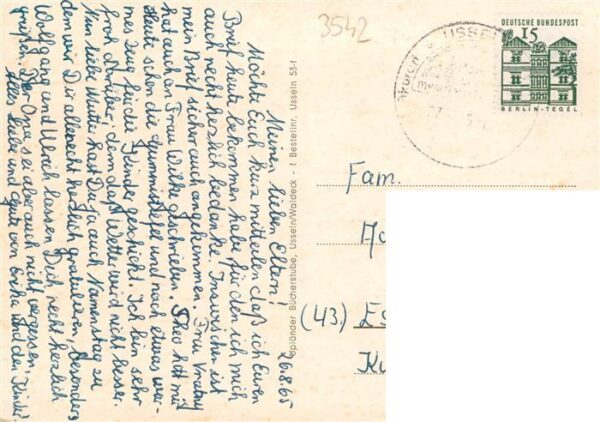 3542
DEUTSCHE BUNDESPOST
15
BERLIN-TEGEL
USSELN
26.8.65
Meinen lieben Eltern!
Möchte Euch kurz mitteilen daß ich Euren
Brief heute bekommen habe für den ich mich
auch recht herzlich bedanke. Inzwischen ist
mein Brief sicher auch angekommen. Frau
hat auch an Frau Wilke geschrieben. Theo hat mir
heute schon die Gummistiefel und noch etwas war-
mes Zeug für die Kinder geschickt. Ich bin sehr
froh darüber, denn das Wetter wird nicht besser.
Nun liebe Mutter hast Du ja auch Namenstag zu
dem wir Dir allerrecht herzlich gratulieren, besonders
Wolfgang und Ulrich lassen Dich recht herzlich
grüßen. Der Opa sei aber auch nicht vergessen.
Alles Liebe und Gute von Erika und den Kinder.
Uppländer Bücherstube, Usseln/Waldeck - f Bestellnr. Usseln 53 f
Fam.
(43) Es